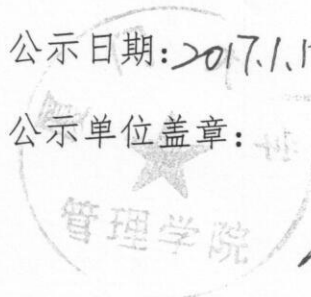 公示日期:2017.1.1
公示单位盖章:
管理学院